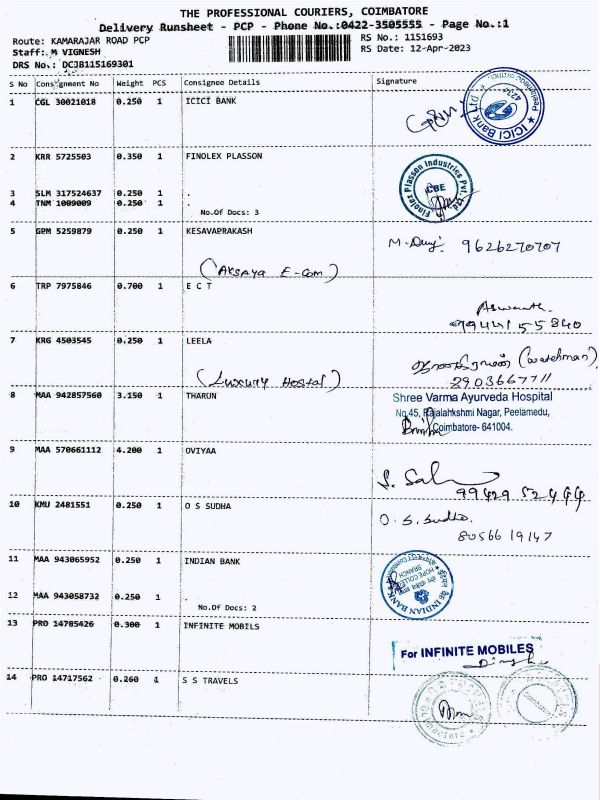 THE PROFESSIONAL COURIERS, COIMBATORE
Delivery Runsheet - PCP - Phone No.:0422-3505555 - Page No.:1
Route: KAMARAJAR ROAD PCP
RS No.: 1151693
Staff: M VIGNESH
RS Date: 12-Apr-2023
DRS No.: DCJB115169301
S No Consignment No Weight PCS Consignee Details Signature
1 CGL 30021018 0.250 1 ICICI BANK
ICICI Bank
2 KRR 5725503 0.350 1 FINOLEX PLASSON
Finolex Plasson Industries Pvt. Ltd
CBE
3 SLM 317524637 0.250 1 .
4 TNM 1009009 0.250 1 .
No.Of Docs: 3
5 GPM 5259879 0.250 1 KESAVAPRAKASH
9626270707
(AKSAYA E-Com)
6 TRP 7975846 0.700 1 E C T
Aswanth
9944155840
7 KRG 4503545 0.250 1 LEELA
(watchman)
(Luxury Hostal)
8 MAA 942857560 3.150 1 THARUN
Shree Varma Ayurveda Hospital
No.45, Rajalahkshmi Nagar, Peelamedu,
Coimbatore- 641004.
9 MAA 570661112 4.200 1 OVIYAA
10 KMU 2481551 0.250 1 O S SUDHA
O.S. Sudha.
80566 19147
11 MAA 943065952 0.250 1 INDIAN BANK
INDIAN BANK
HOPE COLLEGE
BRANCH
12 MAA 943058732 0.250 1 .
No.Of Docs: 2
13 PRO 14785426 0.300 1 INFINITE MOBILS
For INFINITE MOBILES
14 PRO 14717562 0.260 1 S S TRAVELS